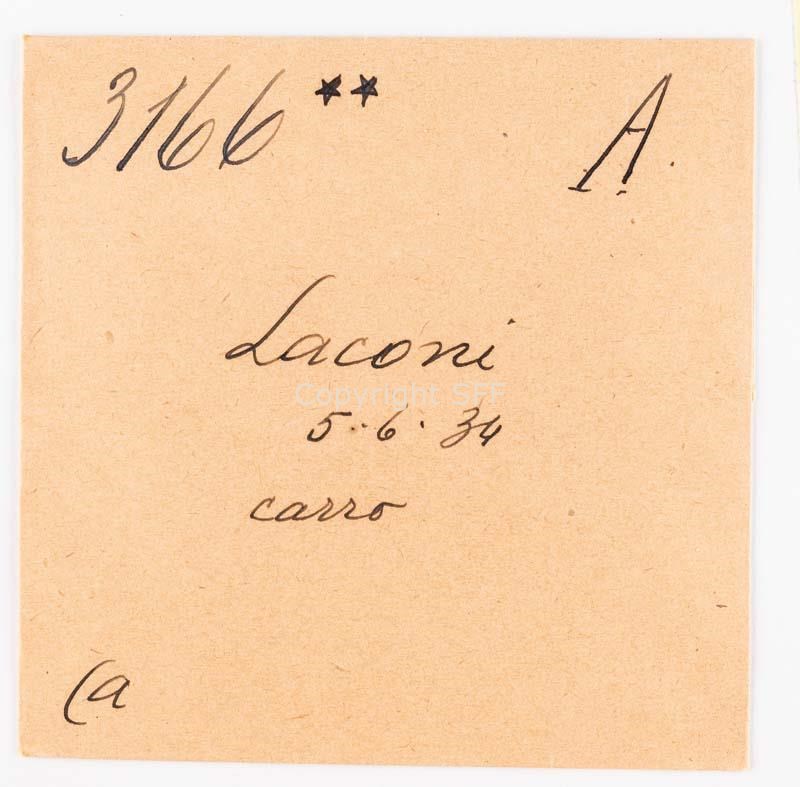 3166** A.
Laconi
Copyright SFF
5.6.34
carro
(a